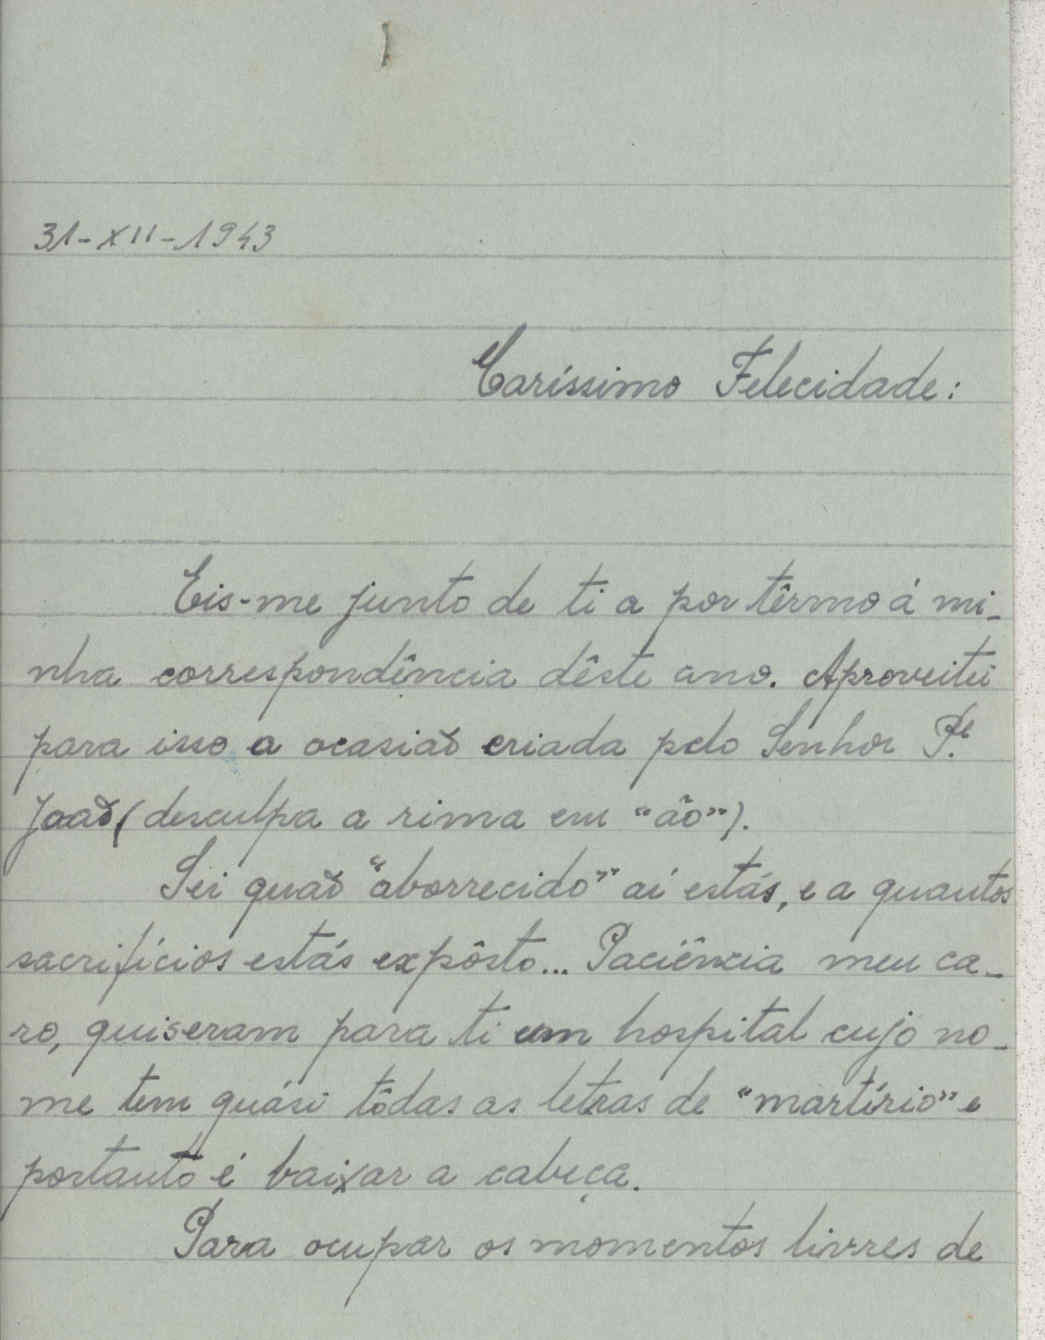 31-XII-1943
Caríssimo Felecidade:
Eis-me junto de ti a por têrmo á mi-
nha correspondência dêste ano. Aproveitei
para isso a ocasião criada pelo Senhor P.e
João (desculpa a rima em "ão").
Sei quão "aborrecido" aí estás, e a quantos
sacrifícios estás expôsto... Paciência meu ca-
ro, quiseram para ti um hospital cujo no-
me tem quási tôdas as letras de "martírio" e
portanto é baixar a cabeça.
Para ocupar os momentos livres de